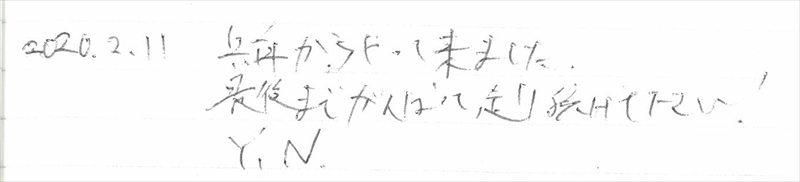 2020.2.11 兵庫からやって来ました.
最後までがんばって走り続けて下さい!
Y.N.